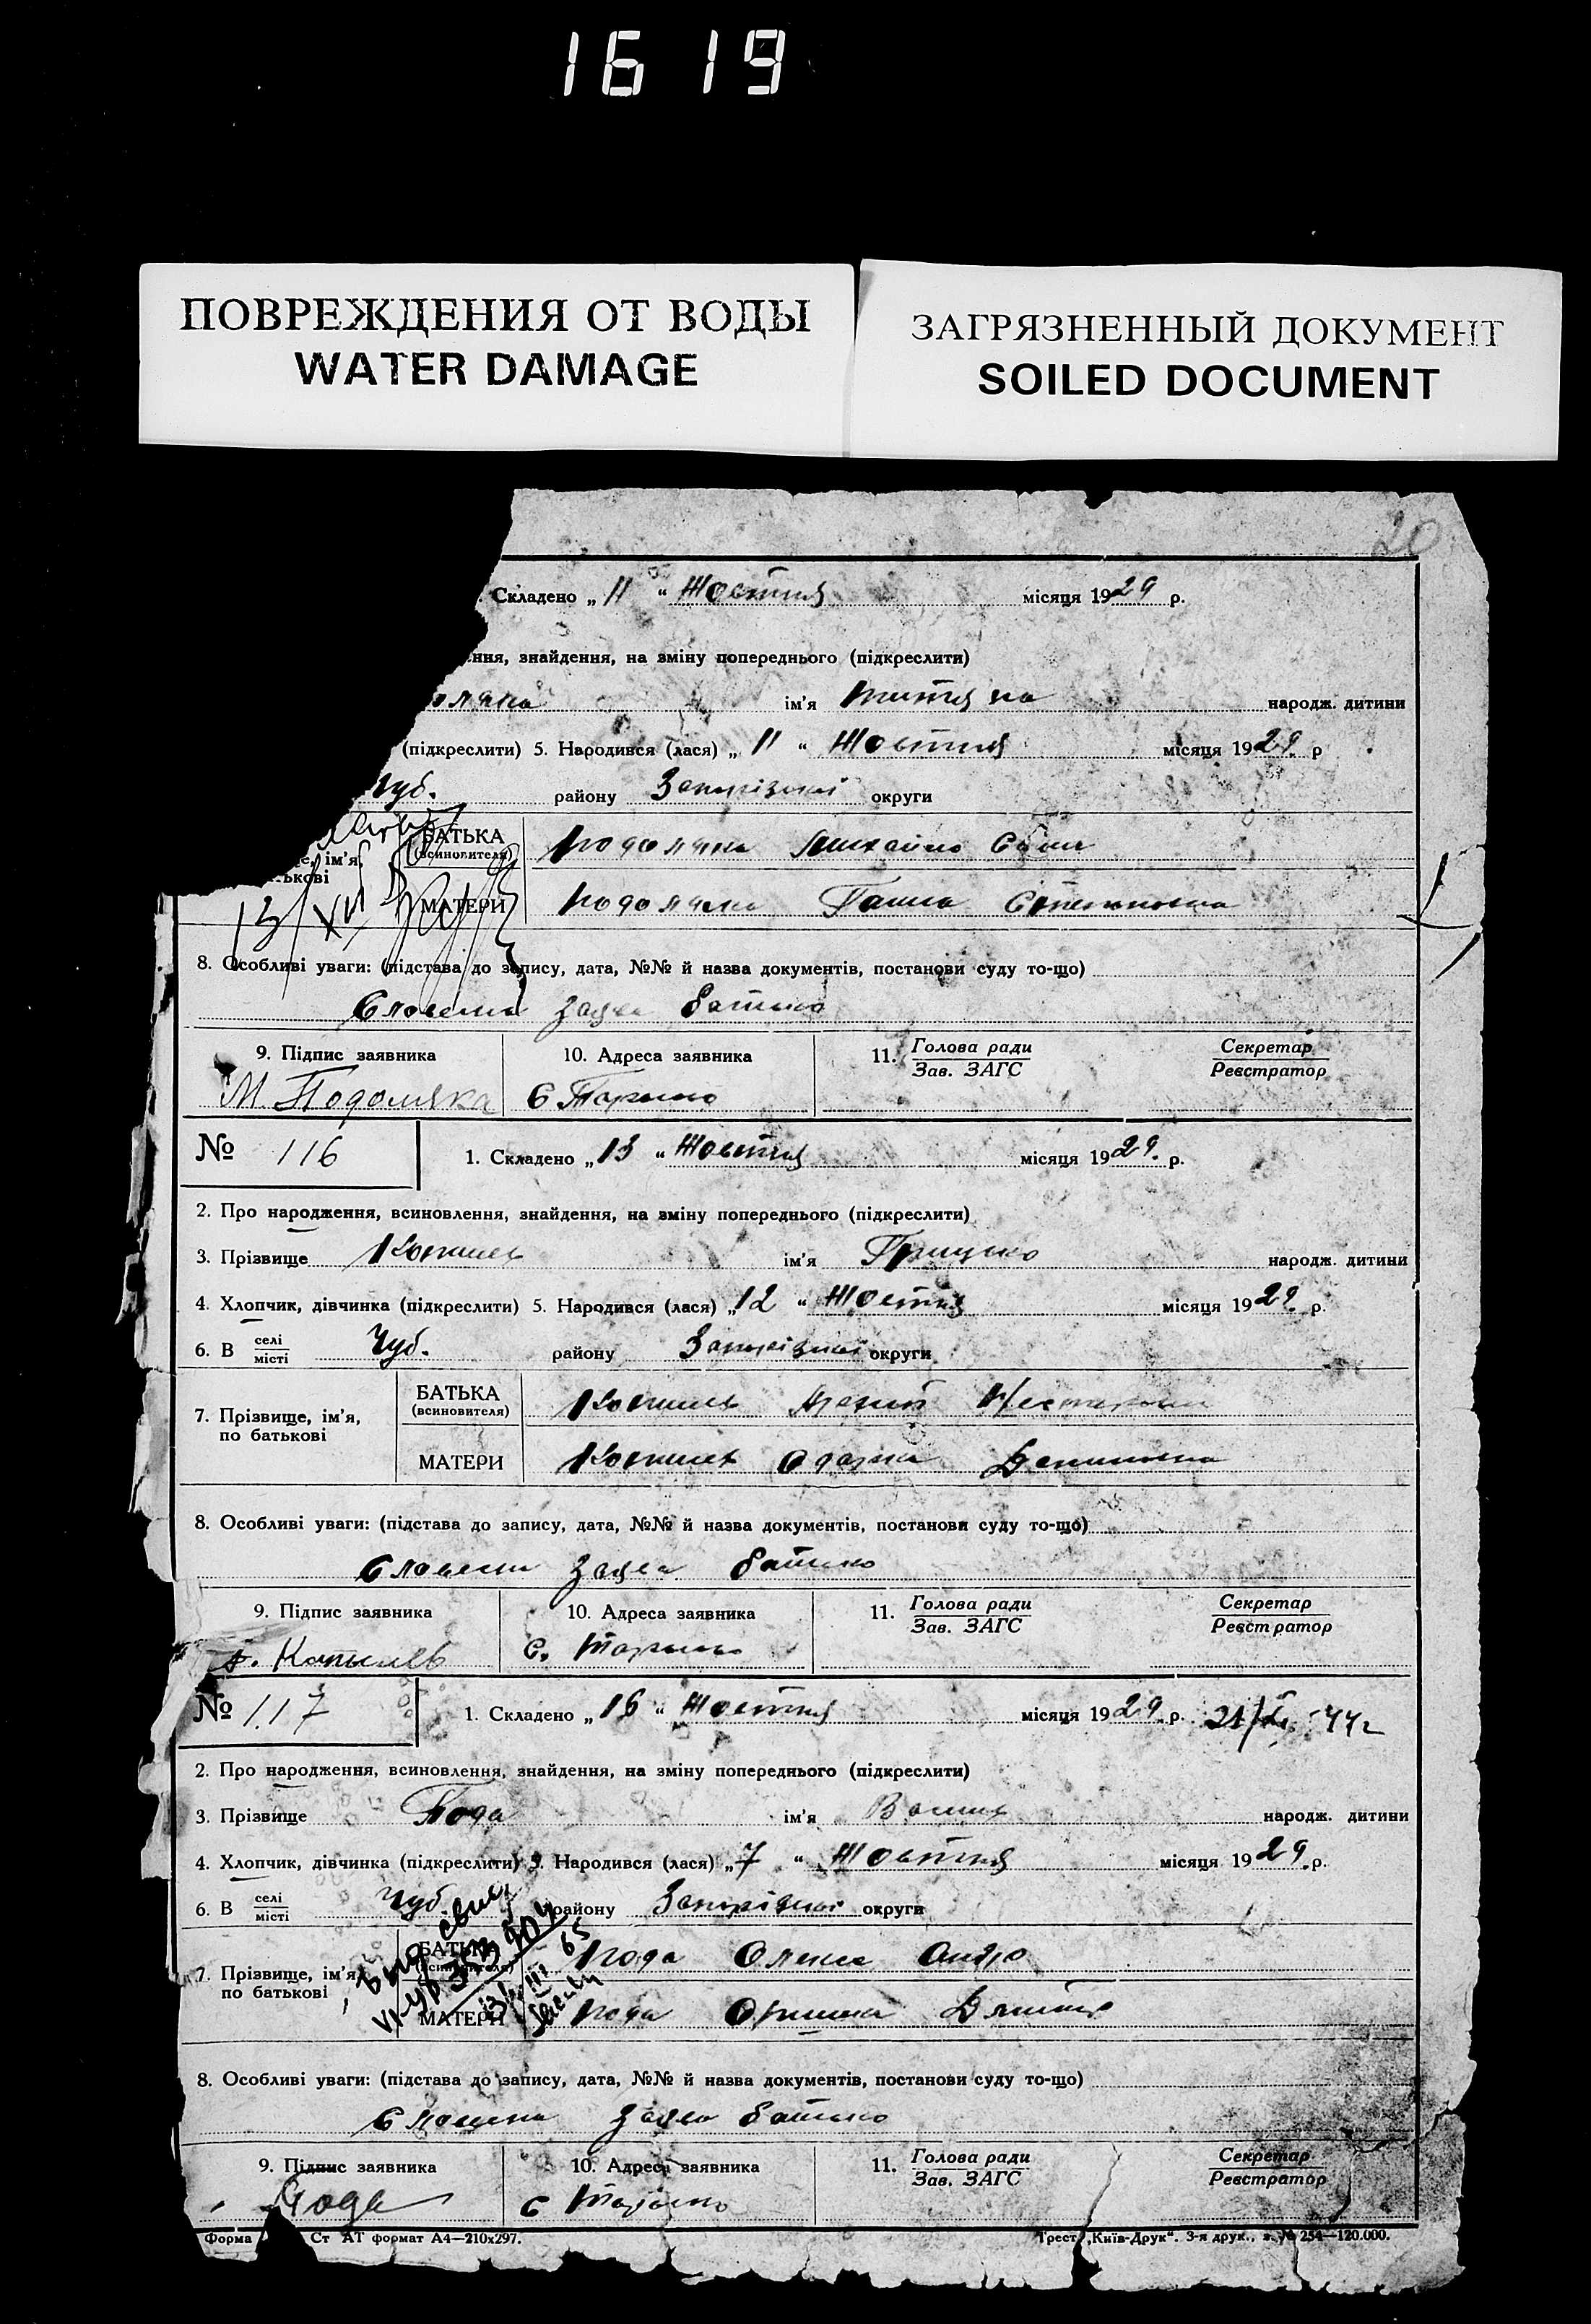 16 19
ПОВРЕЖДЕНИЯ ОТ ВОДЫ
WATER DAMAGE
ЗАГРЯЗНЕННЫЙ ДОКУМЕНТ
SOILED DOCUMENT
20
Складено „ 11 “ Жовтня місяця 1929 р.
ення, знайдення, на зміну попереднього (підкреслити)
оляка ім'я Титяна народж. дитини
(підкреслити) 5. Народився (лася) „ 11 “ Жовтня місяця 1929. р
Чуб. району Запорізької округи
це, ім'я, БАТЬКА (всиновителя) Подоляка Михайло Сав
ькові МАТЕРИ Подоляка Ганна Степановна
13/XII
8. Особливі уваги: (підстава до запису, дата, №№ й назва документів, постанови суду то-що)
Словесна заява батько
9. Підпис заявника 10. Адреса заявника 11. Голова ради Зав. ЗАГС Секретар Реєстратор
М. Подоляка С
№ 116 1. Складено „ 13 “ Жовтня місяця 1929. р.
2. Про народження, всиновлення, знайдення, на зміну попереднього (підкреслити)
3. Прізвище Копилев ім'я Грицько народж. дитини
4. Хлопчик, дівчинка (підкреслити) 5. Народився (лася) „ 12 “ Жовтня місяця 1929. р.
6. В селі місті Чуб. району Запорізької округи
7. Прізвище, ім'я, по батькові БАТЬКА (всиновителя) Копилев
МАТЕРИ Копилев Одарка Денисовна
8. Особливі уваги: (підстава до запису, дата, №№ й назва документів, постанови суду то-що)
Словесна заява батько
9. Підпис заявника 10. Адреса заявника 11. Голова ради Зав. ЗАГС Секретар Реєстратор
Копылевъ С.
№ 117 1. Складено „ 16 “ Жовтня місяця 1929. р.
2. Про народження, всиновлення, знайдення, на зміну попереднього (підкреслити)
3. Прізвище Пода ім'я народж. дитини
4. Хлопчик, дівчинка (підкреслити) 5. Народився (лася) „ 7 “ Жовтня місяця 1929. р.
6. В селі місті Чуб. району Запорізької округи
7. Прізвище, ім'я, по батькові БАТЬКА (всиновителя) Пода Олекса
МАТЕРИ Пода Оришка
Выд. свид.
8. Особливі уваги: (підстава до запису, дата, №№ й назва документів, постанови суду то-що)
Словесна заява батько
9. Підпис заявника 10. Адреса заявника 11. Голова ради Зав. ЗАГС Секретар Реєстратор
Пода С
Форма Ст АТ формат А4—210х297. Трест „Київ-Друк“. 3-я друк., з. № 254—120.000.